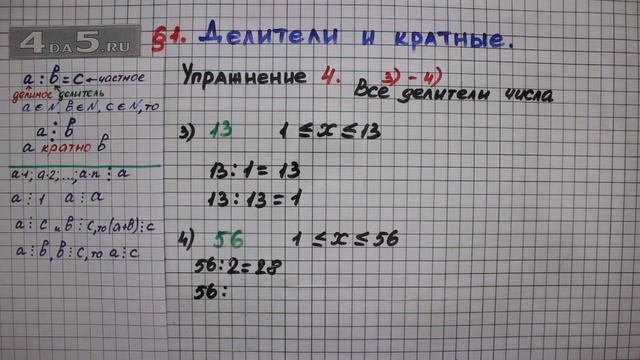 4DA5.RU
§1. Делители и кратные.
a : b = c ← частное
делимое делитель
a ∈ N, b ∈ N, c ∈ N, то
a ⋮ b
a кратно b
a·1; a·2; ...; a·n ⋮ a
a ⋮ 1 a ⋮ a
a ⋮ c и b ⋮ c, то (a+b) ⋮ c
a ⋮ b, b ⋮ c, то a ⋮ c
Упражнение 4. 3) - 4)
Все делители числа
3) 13 1 ≤ x ≤ 13
13 : 1 = 13
13 : 13 = 1
4) 56 1 ≤ x ≤ 56
56 : 2 = 28
56 :